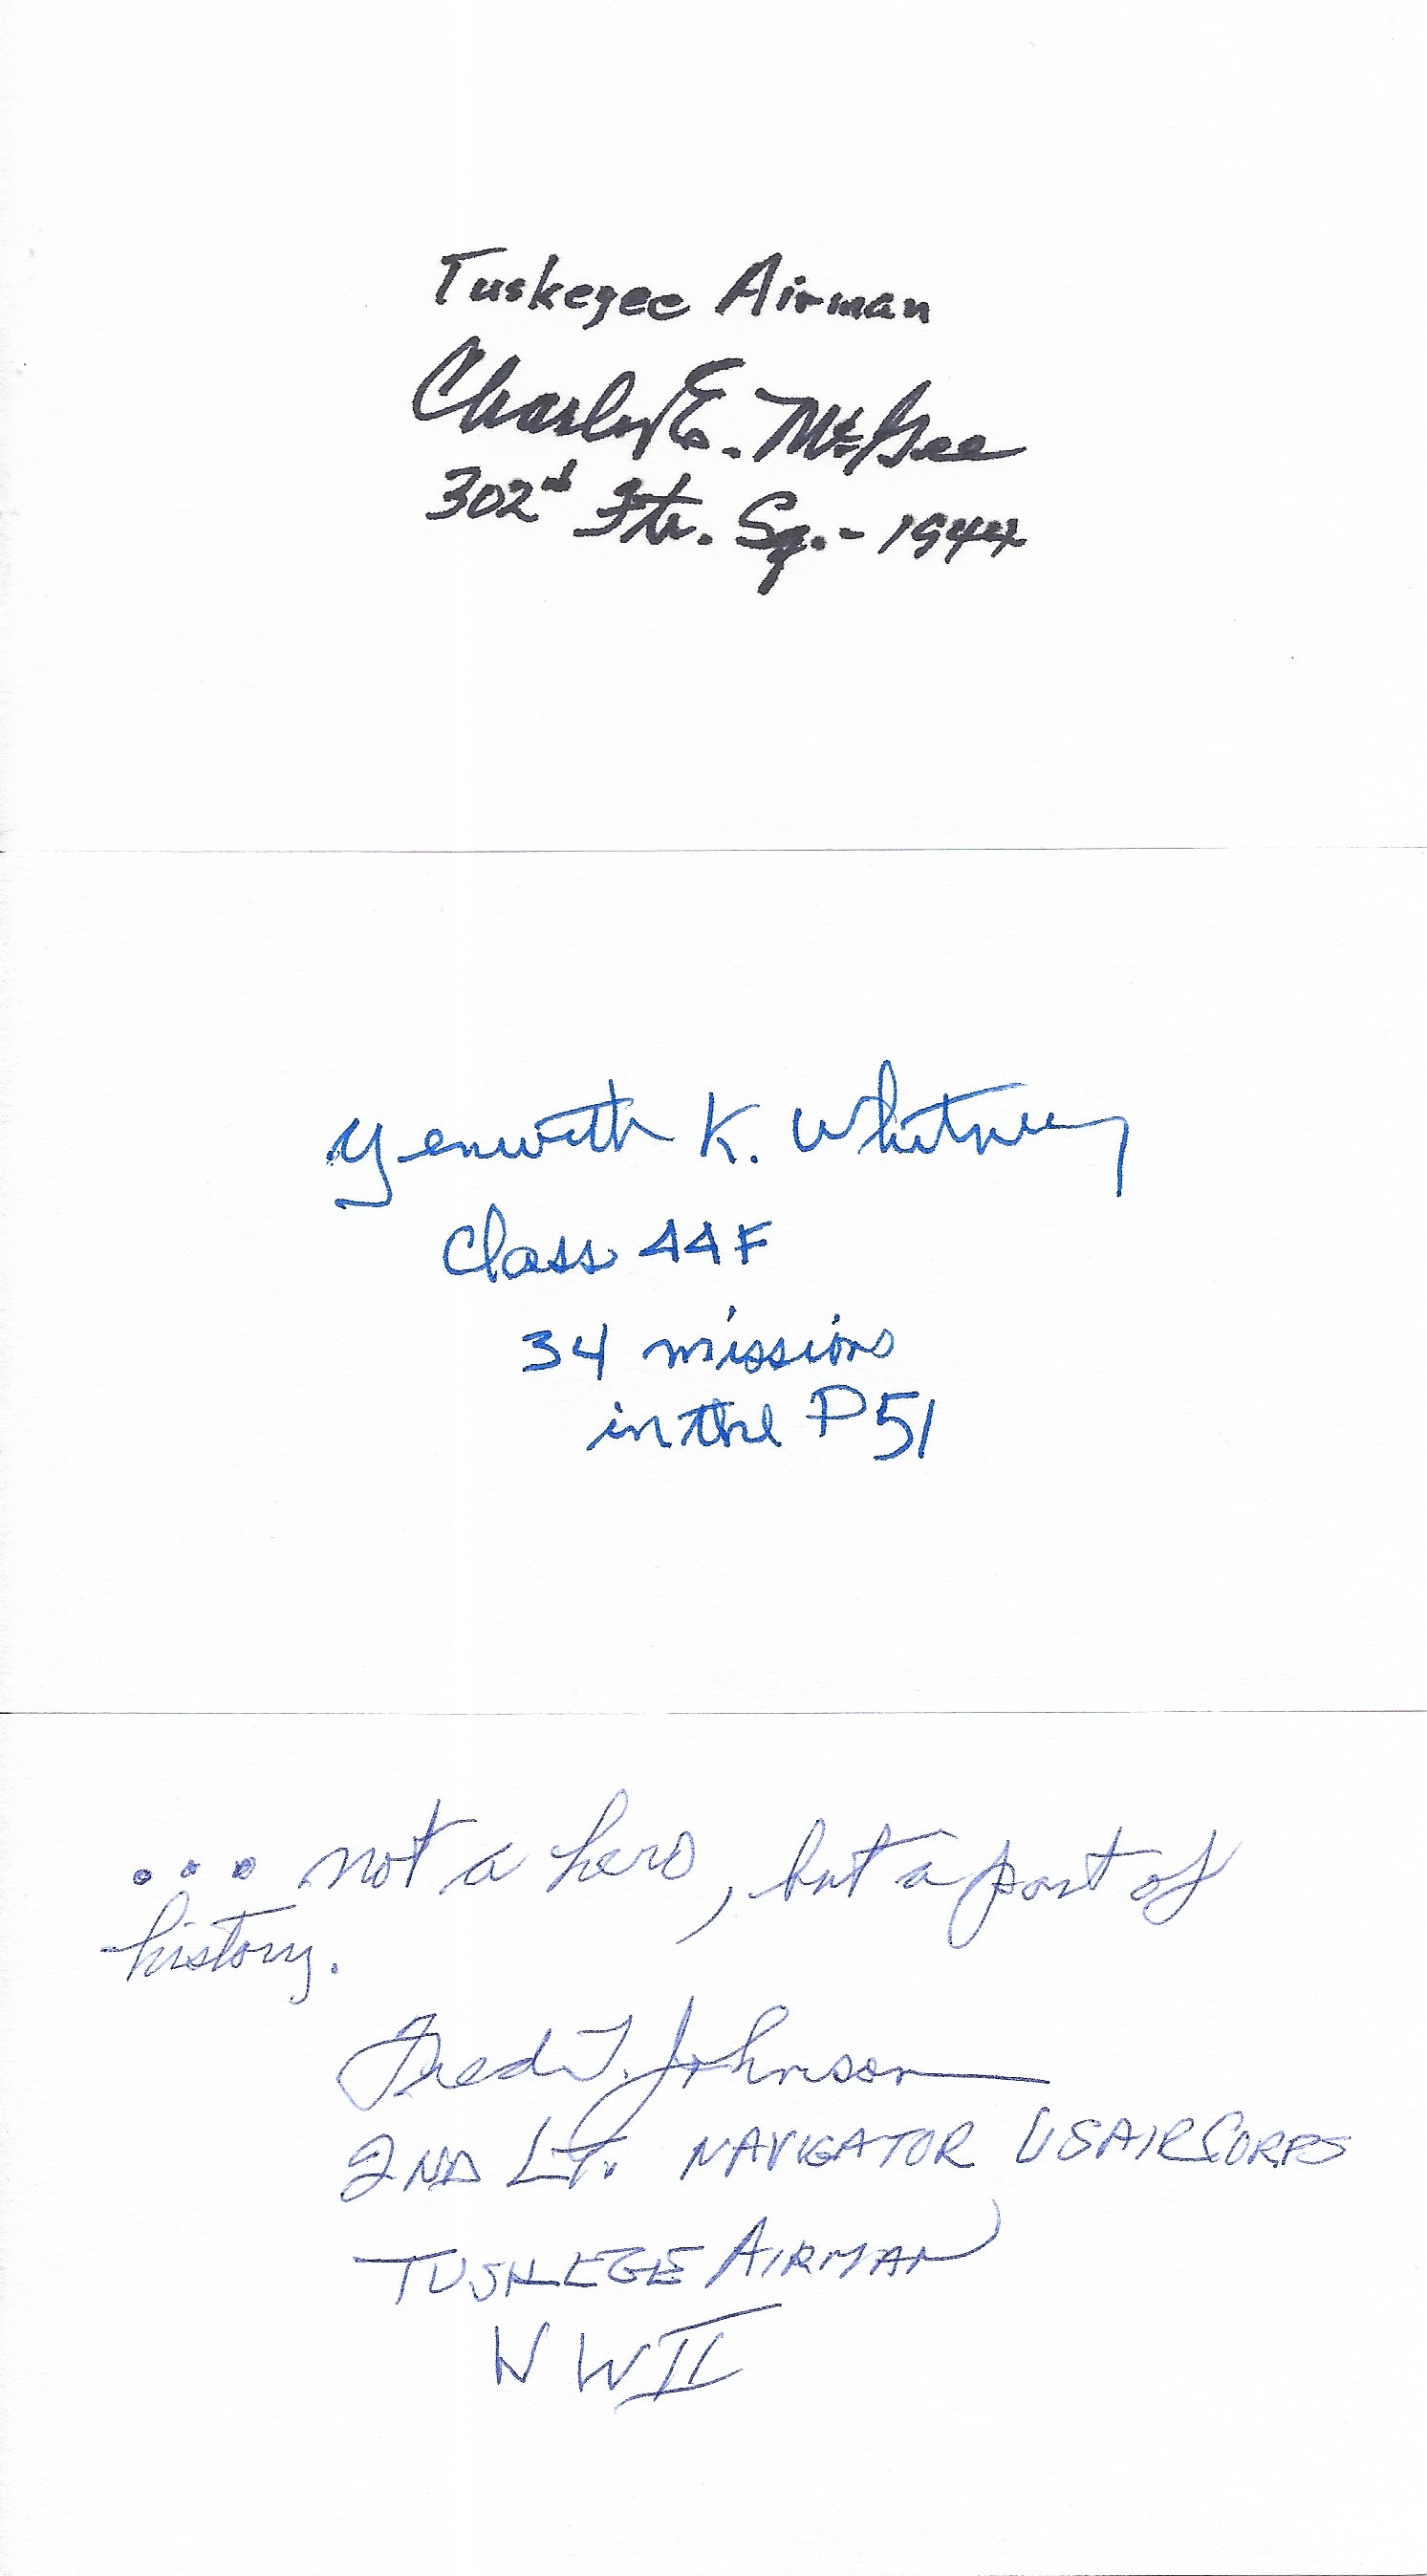 Tuskegee Airman
Charles E. McGee
302d Ftr. Sq. - 1944
Yenwith K. Whitney
Class 44F
34 missions
in the P51
... not a hero, but a part of
history.
Fred T. Johnson
2ND LT. NAVIGATOR US AIR CORPS
TUSKEGE AIRMAN
WWII